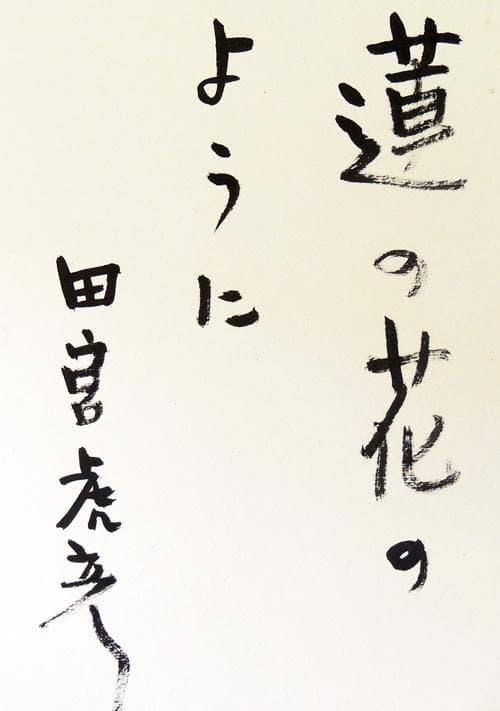 蓮の花の
ように
田宮虎彦